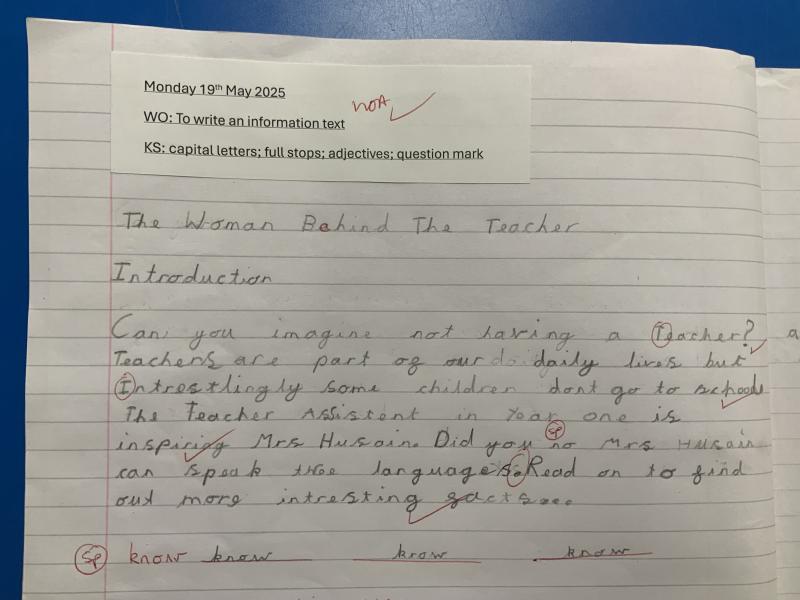 Monday 19th May 2025
WO: To write an information text
KS: capital letters; full stops; adjectives; question mark
The Woman Behind The Teacher
Introduction
Can you imagine not having a Teacher?
Teachers are part of our daily lives but
Intrestlingly some children dont go to school
The Teacher Assistent in Year one is
inspiring Mrs Husain. Did you no Mrs Husain
sp
can speak thee languages. Read on to find
out more intresting facts...
sp know know know know